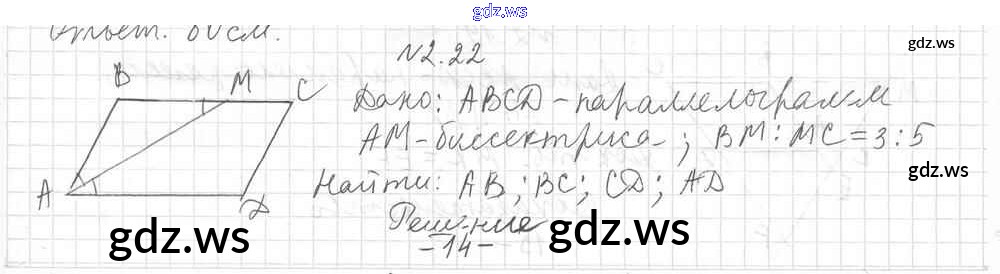 gdz.ws
Ответ. 60 см.
N2.22
gdz.ws
B M C
Дано: ABCD - параллелограмм
AM - биссектриса; BM : MC = 3 : 5
A D
Найти: AB; BC; CD; AD
Решение
gdz.ws gdz.ws gdz.ws
- 14 -